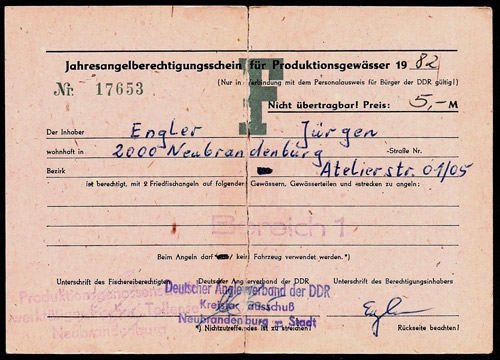 Jahresangelberechtigungsschein für Produktionsgewässer 19 82
(Nur in Verbindung mit dem Personalausweis für Bürger der DDR gültig!)
F
Nr. 17653
Nicht übertragbar! Preis: 5,- M
Der Inhaber Engler Jürgen
wohnhaft in 2000 Neubrandenburg -Straße Nr.
Bezirk Atelierstr. 01/05
ist berechtigt, mit 2 Friedfischangeln auf folgenden Gewässern, Gewässerteilen und -strecken zu angeln:
Bereich 1
Beim Angeln darf kein Fahrzeug verwendet werden.*)
Unterschrift des Fischereiberechtigten Deutscher Anglerverband der DDR Unterschrift des Berechtigungsinhabers
Deutscher Anglerverband der DDR
Kreis ausschuß
Neubrandenburg - Stadt
Engler
*) Nichtzutreffendes ist zu streichen! Rückseite beachten!